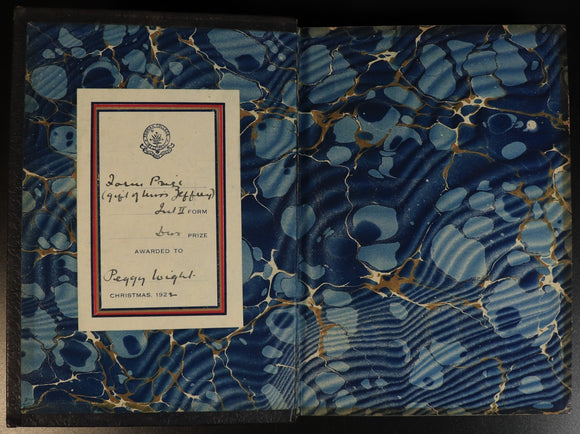 Form Prize
(gift of Miss Jeffrey)
Int II FORM
Dux PRIZE
AWARDED TO
Peggy Wight.
CHRISTMAS, 1922